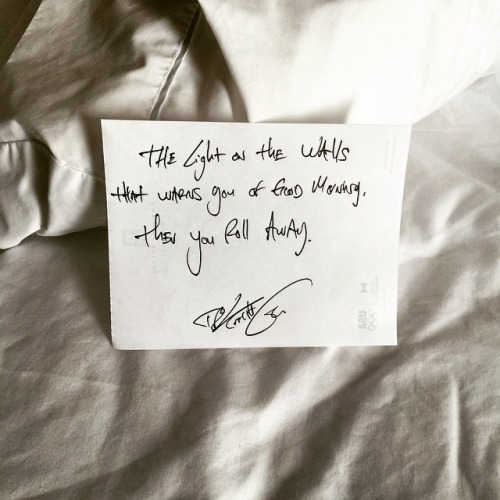 THE Light on the WAlls
that warns you of Good Morning.
then you Roll AwAy.